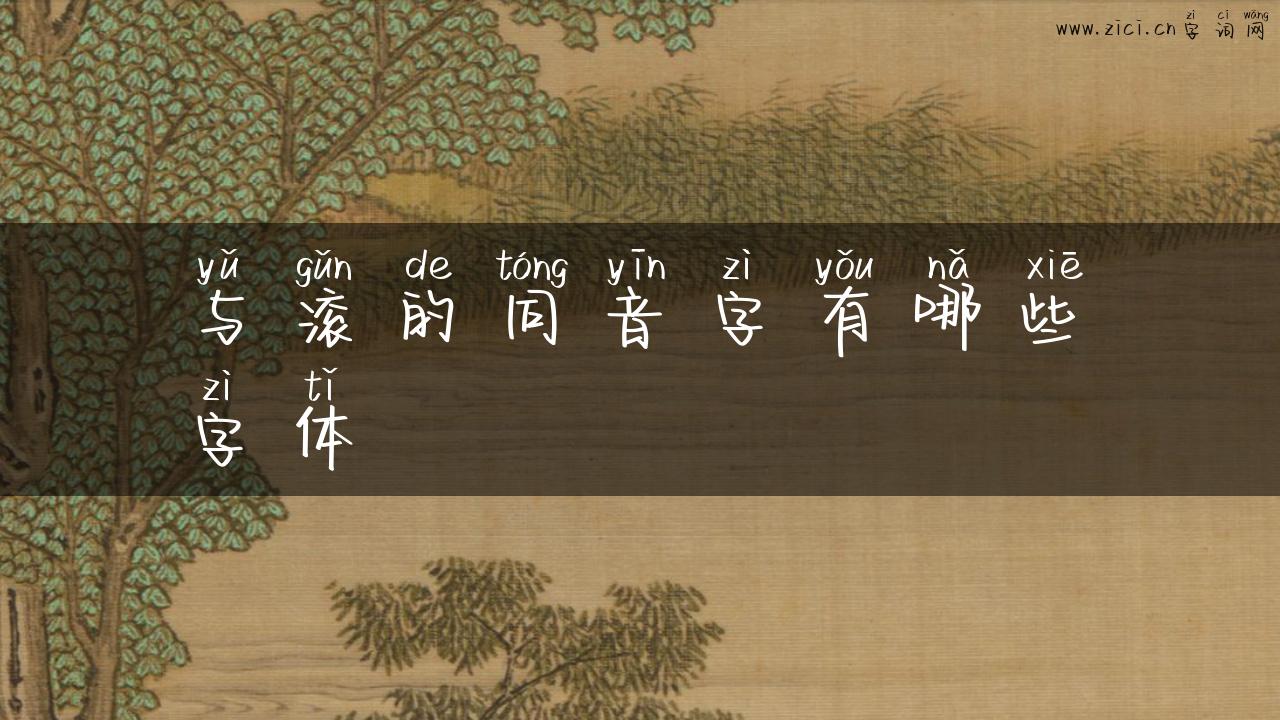 zì cí wǎng
www.zici.cn字词网
yǔ gǔn de tóng yīn zì yǒu nǎ xiē
与滚的同音字有哪些
zì tǐ
字体